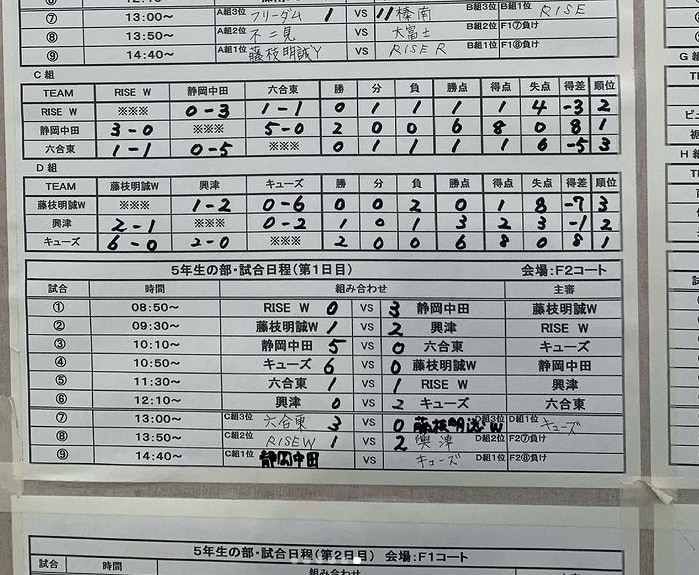 ⑦ 13:00～ A組3位 フリーダム 1 VS 11 榛南 B組3位 B組1位 RISE
⑧ 13:50～ A組2位 不二見 VS 大富士 B組2位 F1⑦負け
⑨ 14:40～ A組1位 藤枝明誠Y VS RISE R B組1位 F1⑧負け
C組
TEAM RISE W 静岡中田 六合東 勝 分 負 勝点 得点 失点 得差 順位
RISE W ※※※ 0-3 1-1 0 1 1 1 1 4 -3 2
静岡中田 3-0 ※※※ 5-0 2 0 0 6 8 0 8 1
六合東 1-1 0-5 ※※※ 0 1 1 1 1 6 -5 3
D組
TEAM 藤枝明誠W 興津 キューズ 勝 分 負 勝点 得点 失点 得差 順位
藤枝明誠W ※※※ 1-2 0-6 0 0 2 0 1 8 -7 3
興津 2-1 ※※※ 0-2 1 0 1 3 2 3 -1 2
キューズ 6-0 2-0 ※※※ 2 0 0 6 8 0 8 1
5年生の部・試合日程(第1日目) 会場:F2コート
試合 時間 組み合わせ 主審
① 08:50～ RISE W 0 VS 3 静岡中田 藤枝明誠W
② 09:30～ 藤枝明誠W 1 VS 2 興津 RISE W
③ 10:10～ 静岡中田 5 VS 0 六合東 キューズ
④ 10:50～ キューズ 6 VS 0 藤枝明誠W 静岡中田
⑤ 11:30～ 六合東 1 VS 1 RISE W 興津
⑥ 12:10～ 興津 0 VS 2 キューズ 六合東
⑦ 13:00～ C組3位 六合東 3 VS 0 藤枝明誠W D組3位 D組1位 キューズ
⑧ 13:50～ C組2位 RISE W 1 VS 2 興津 D組2位 F2⑦負け
⑨ 14:40～ C組1位 静岡中田 VS キューズ D組1位 F2⑧負け
5年生の部・試合日程(第2日目) 会場:F1コート
試合 時間 組み合わせ
G組
TEAM
H組